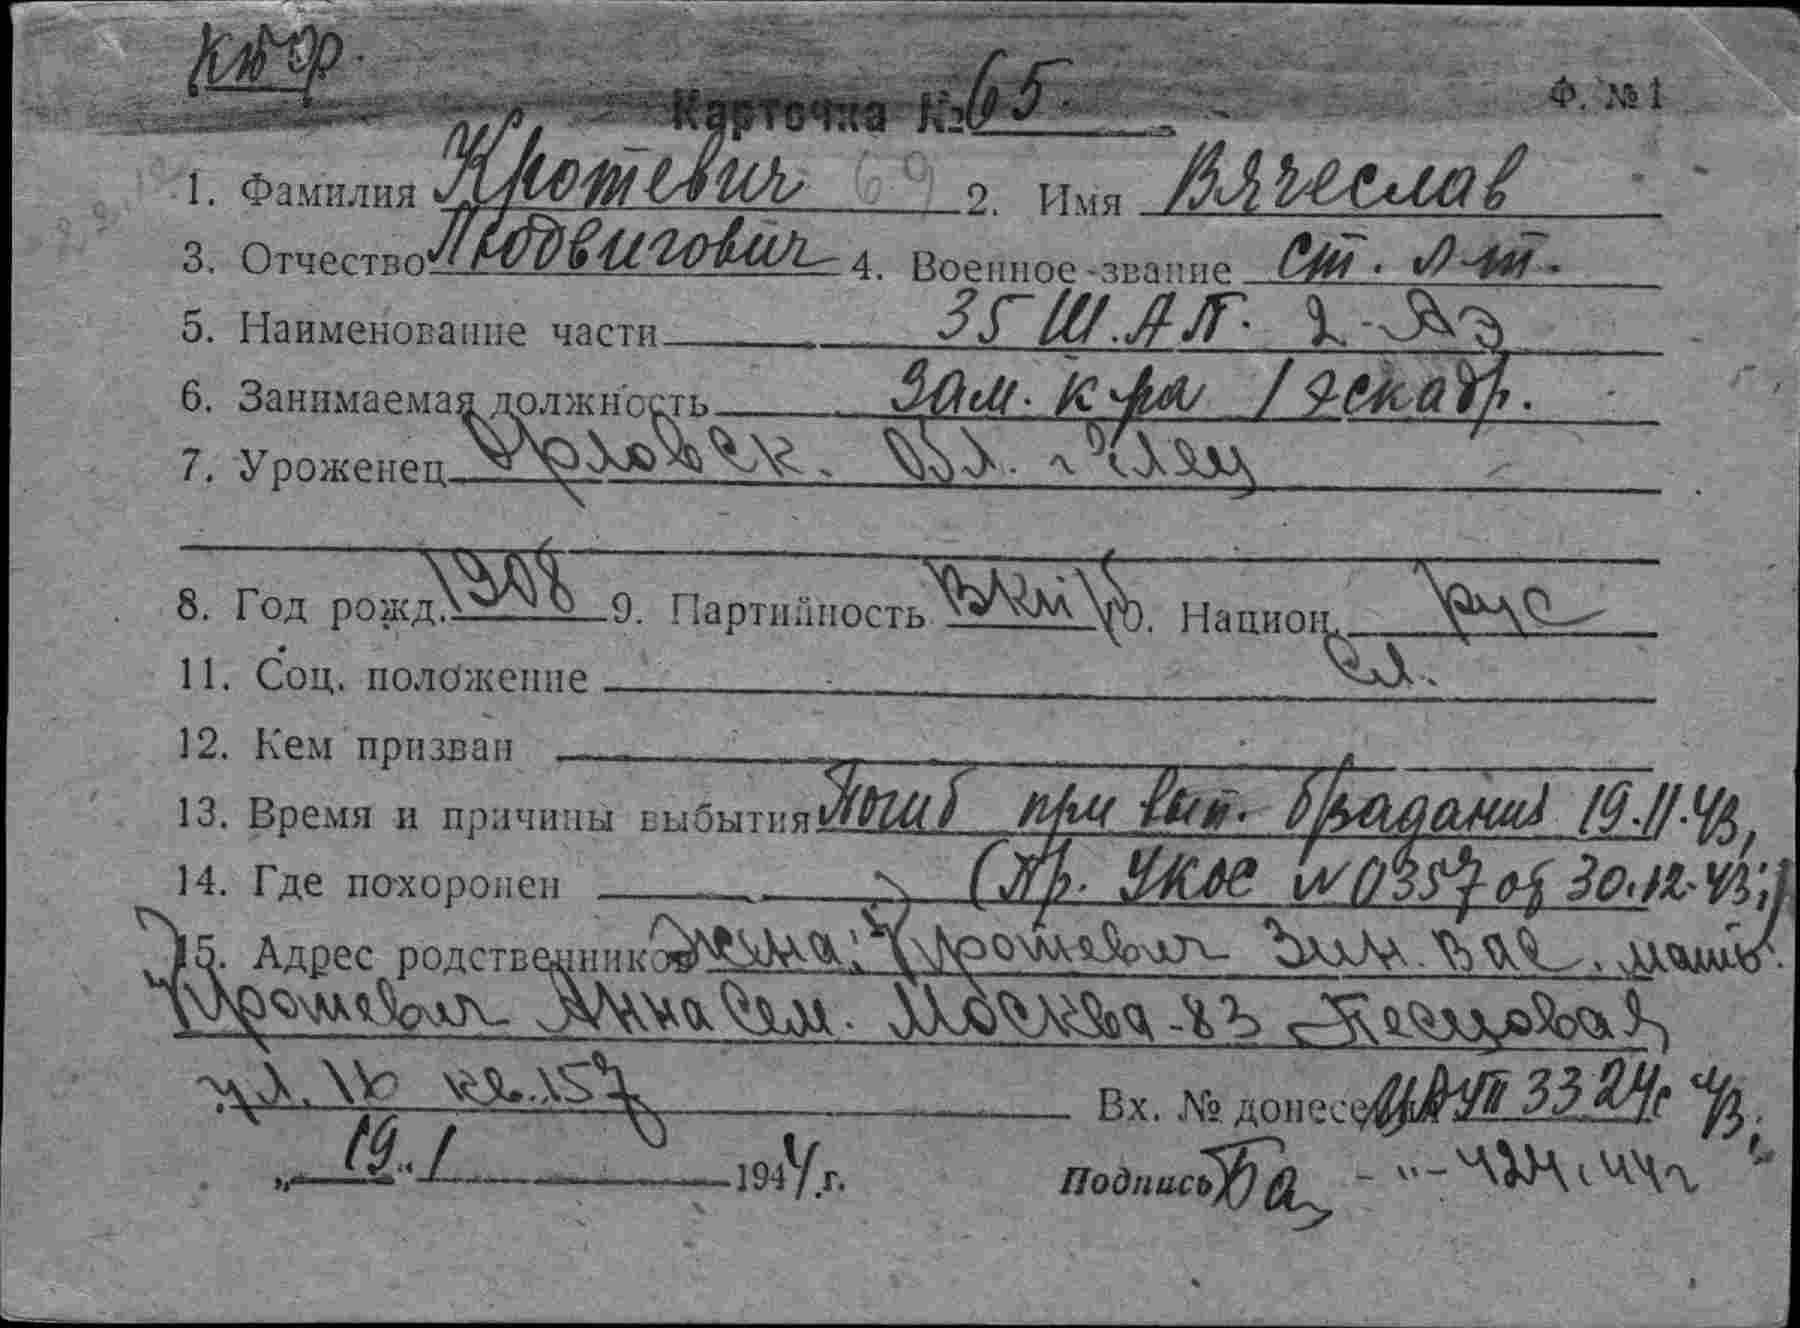 Карточка № 65. Ф. № 1
1. Фамилия Кротевич 69 2. Имя Вячеслав
3. Отчество Людвигович 4. Военное звание ст. л-т.
5. Наименование части 35 Ш.А.П.
6. Занимаемая должность Зам. к-ра 1 эскадр.
7. Уроженец Орловск. обл. г. Елец
8. Год рожд. 1908 9. Партийность ВКП/б 10. Национ. рус
11. Соц. положение сл.
12. Кем призван
13. Время и причины выбытия Погиб при вып. б/задания 19.11.43,
14. Где похоронен (Пр. № 0357 от 30.12.43г)
15. Адрес родственников жена: Кротевич Зин. Вас. мать
Кротевич Анна Сем. Москва-83
ул. 16 кв. 157 Вх. № донесе 3324с 43г.
„ 19 „ 1 1944 г. Подпись